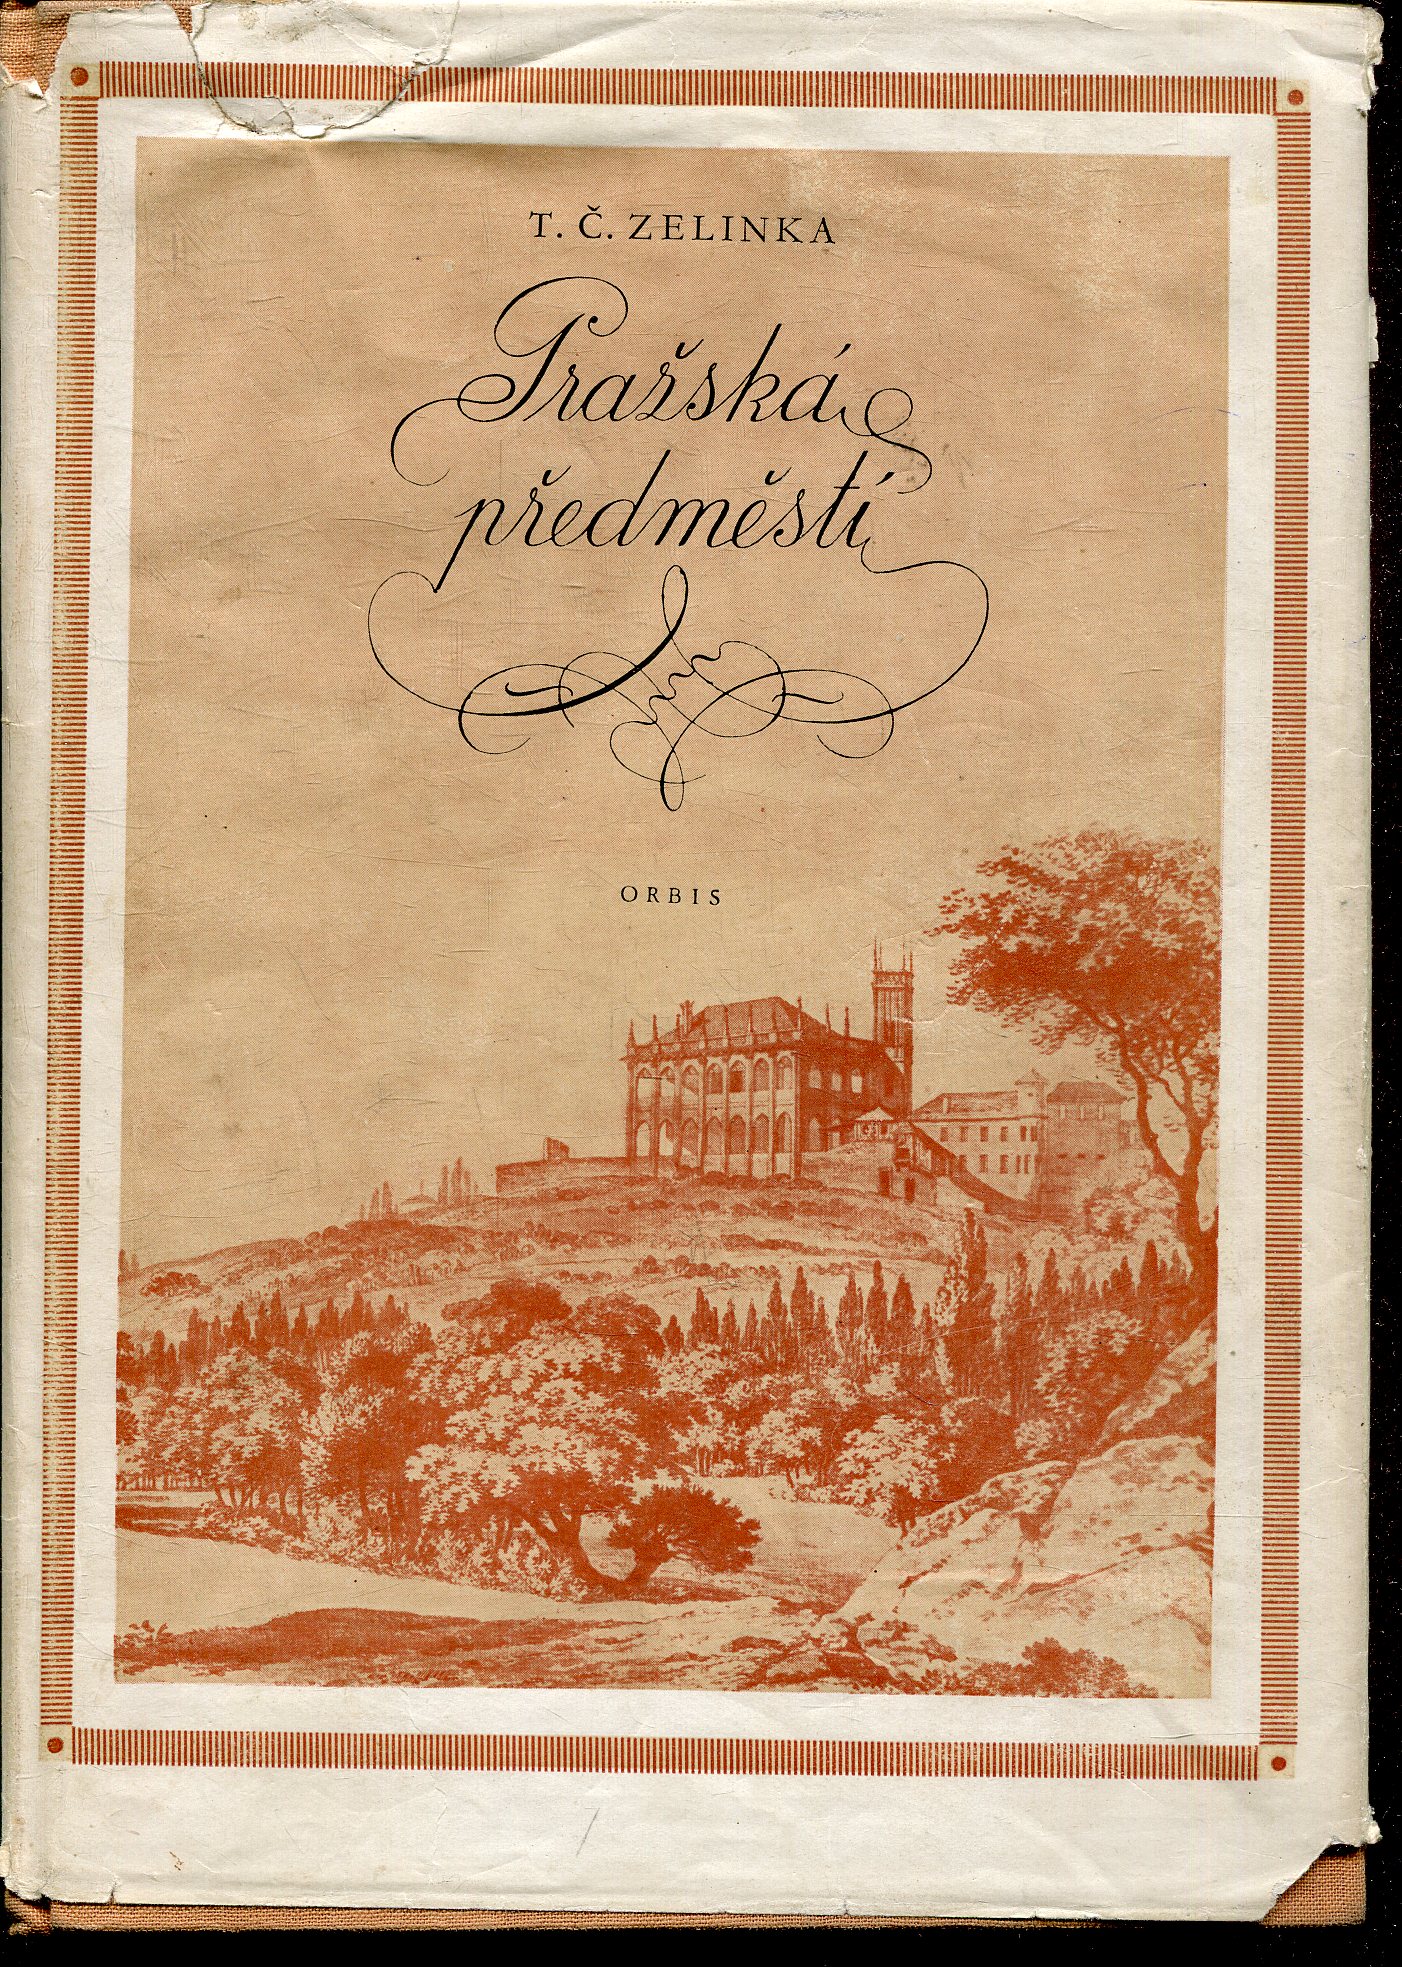 T. Č. ZELINKA
Pražská
předměstí
ORBIS